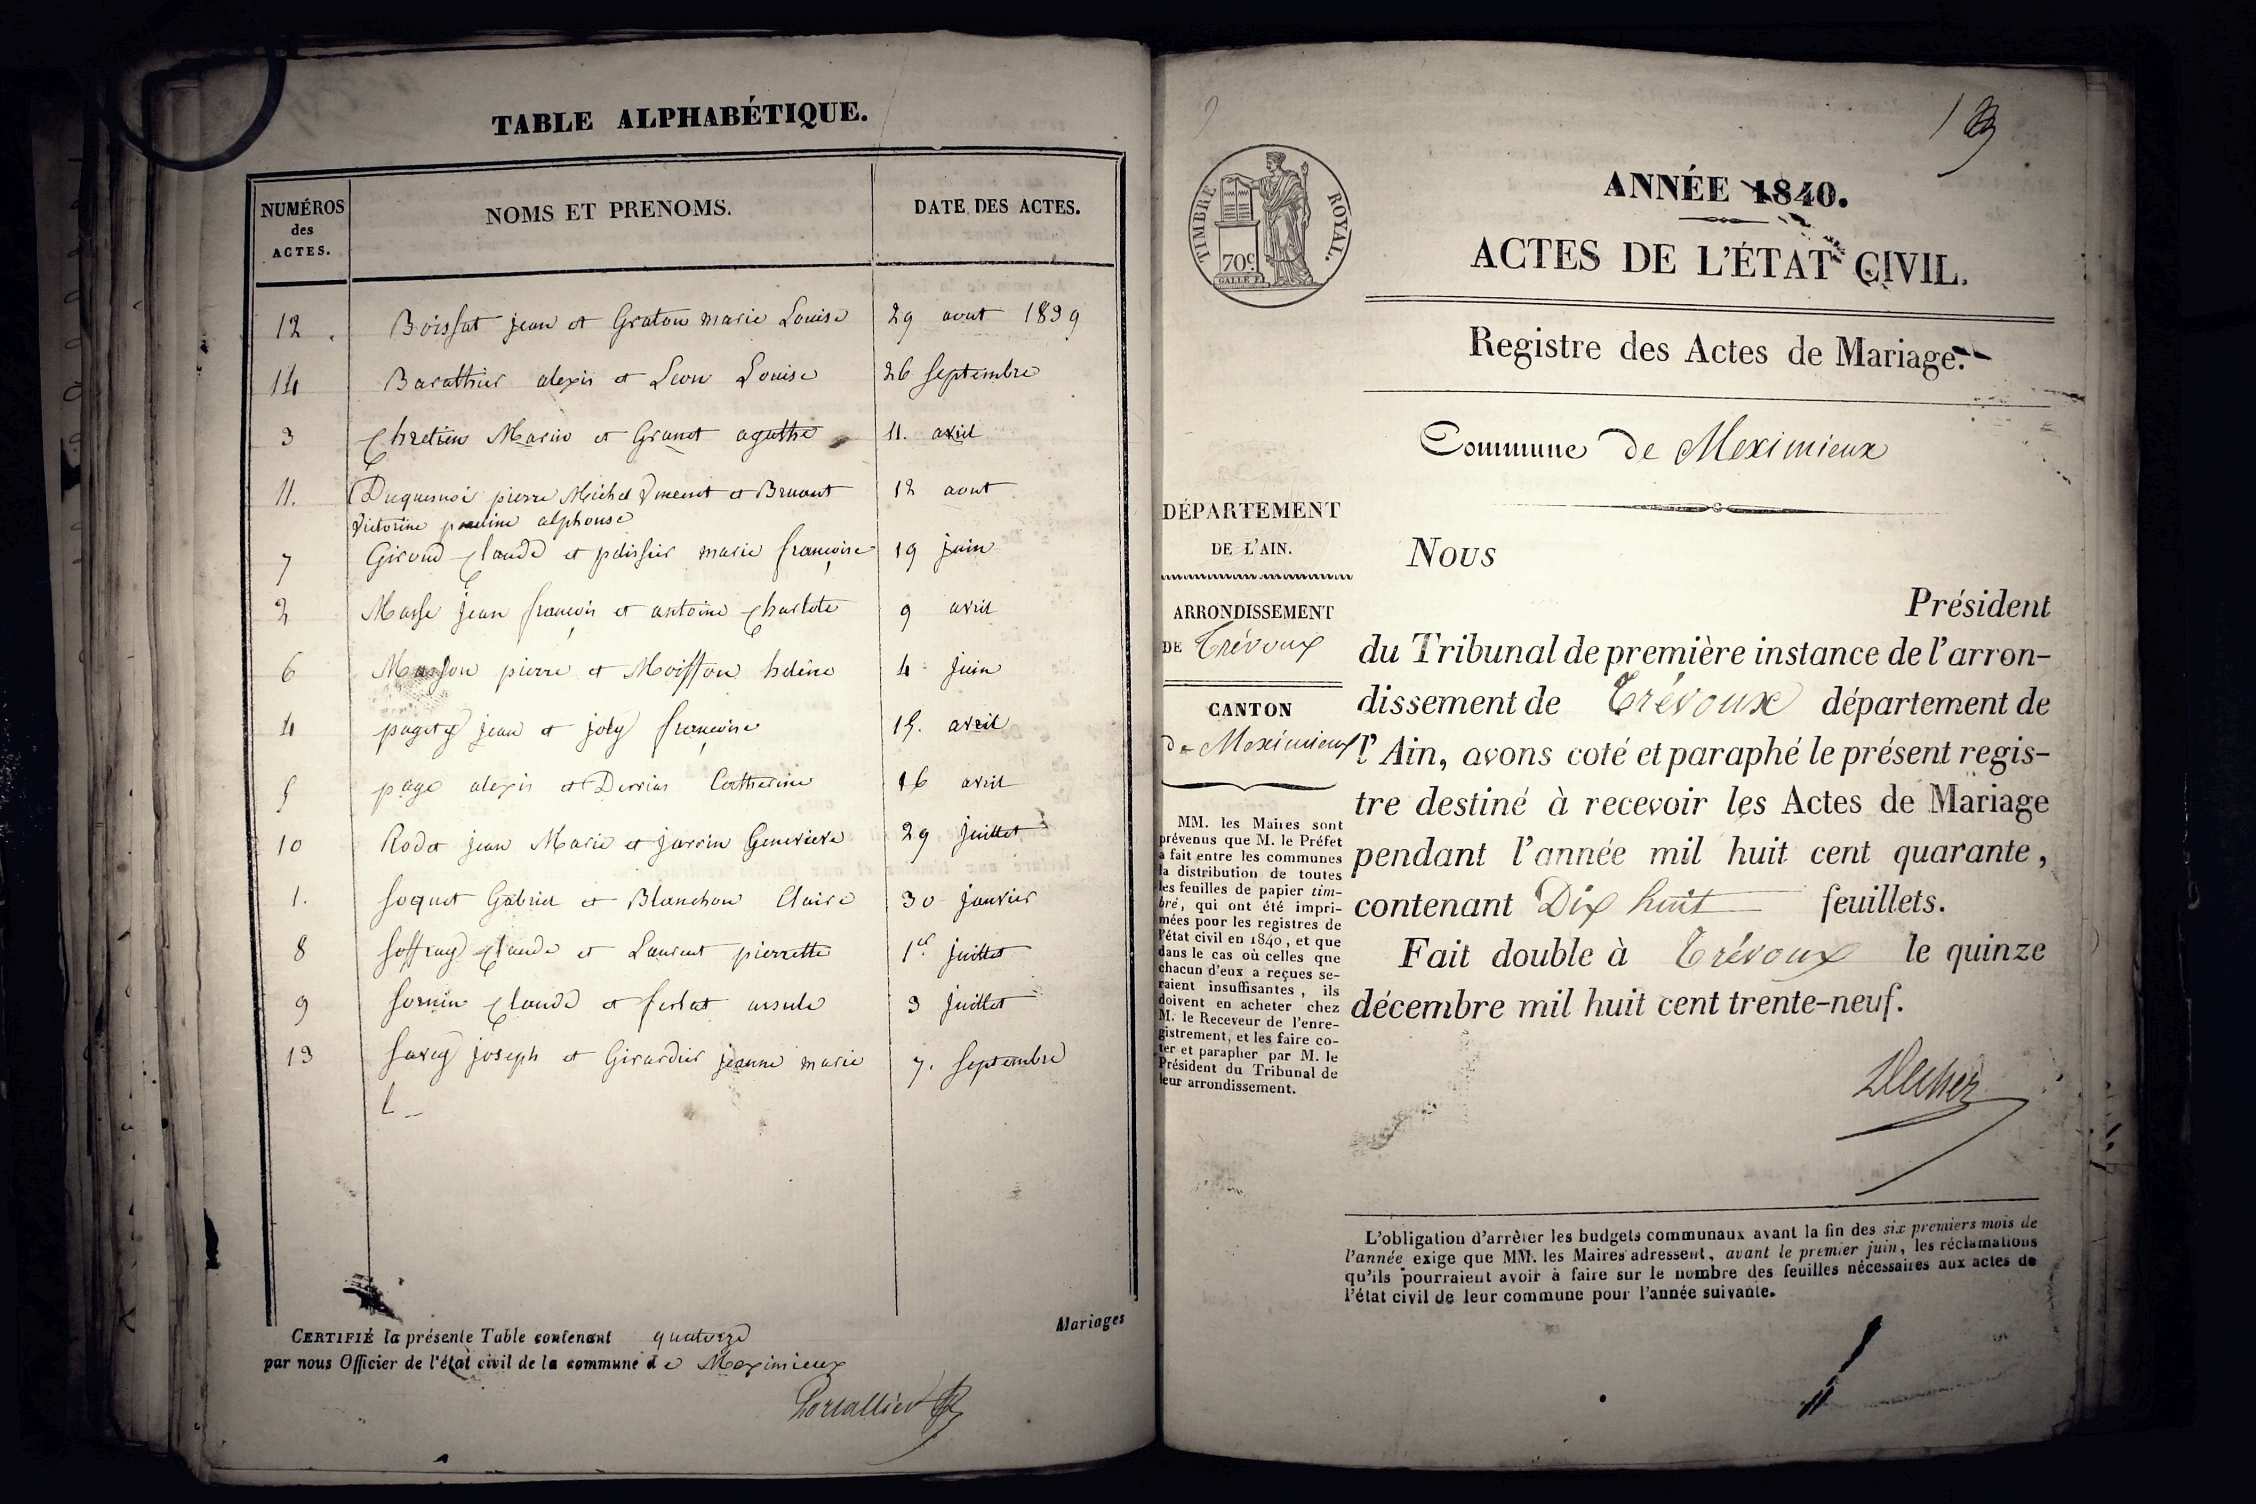 TABLE ALPHABÉTIQUE.
NUMÉROS des ACTES. NOMS ET PRENOMS. DATE DES ACTES.
12. Boissat jean et Graton marie Louise 29 aout 1839
14 Barathier alexis et Leon Louise 26 septembre
3 Chretien Marin et Granet agathe 11. avril
11. Duquesnoi pierre Michel Vincent et Bruant 12 aout
Victorine pauline alphonse
7 Giroud Claude et pelissier marie francoise 19 juin
2 Masse jean francois et antoine Charlote 9 avril
6 Masson pierre et Moisson helene 4 juin
4 pagety jean et joly francoise 15. avril
5 page alexis et Dervias Catherine 16 avril
10 Rodet jean Marie et jarrin Genevieve 29 juillet
1. soquet Gabriel et Blanchon Claire 30 janvier
8 soffray Claude et Laurent pierrette 1er juillet
9 sornin Claude et ferlat ursule 3 juillet
13 savey joseph et Girardier jeanne marie 7. septembre
CERTIFIÉ la présente Table contenant quatorze Mariages
par nous Officier de l'état civil de la commune de Meximieux
Portallier
1
ANNÉE 1840.
TIMBRE ROYAL.
70c
ACTES DE L'ÉTAT CIVIL.
Registre des Actes de Mariage.
Commune de Meximieux
DÉPARTEMENT
DE L'AIN.
ARRONDISSEMENT
DE Trévoux
CANTON
de Meximieux
MM. les Maires sont
prévenus que M. le Préfet
a fait entre les communes
la distribution de toutes
les feuilles de papier tim-
bré, qui ont été impri-
mées pour les registres de
l'état civil en 1840, et que
dans le cas où celles que
chacun d'eux a reçues se-
raient insuffisantes, ils
doivent en acheter chez
M. le Receveur de l'enre-
gistrement, et les faire co-
ter et parapher par M. le
Président du Tribunal de
leur arrondissement.
Nous
Président
du Tribunal de première instance de l'arron-
dissement de Trévoux département de
l'Ain, avons coté et paraphé le présent regis-
tre destiné à recevoir les Actes de Mariage
pendant l'année mil huit cent quarante,
contenant Dix huit feuillets.
Fait double à Trévoux le quinze
décembre mil huit cent trente-neuf.
L'obligation d'arrêter les budgets communaux avant la fin des six premiers mois de
l'année exige que MM. les Maires adressent, avant le premier juin, les réclamations
qu'ils pourraient avoir à faire sur le nombre des feuilles nécessaires aux actes de
l'état civil de leur commune pour l'année suivante.